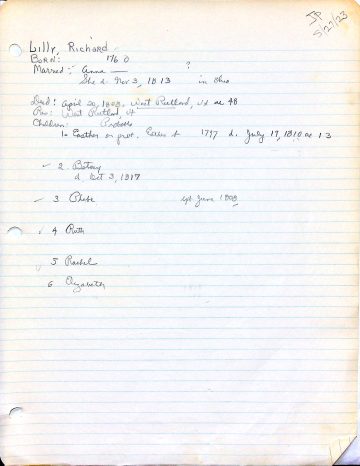 JP
5/27/23
Lilly, Richard
BORN: 1760
Married: Anna ?
She d. Nov 3, 1813 in Ohio
Died: April 30, 1808, West Rutland, Vt ae 48
Res: West Rutland, Vt
Children:
1. 1797 d. July 17, 1810 ae 13
✓ 2. Betsey
d Oct 3, 1817
✓ 3 Phebe June 1808
✓ 4 Ruth
✓ 5 Rachel
6 Elizabeth